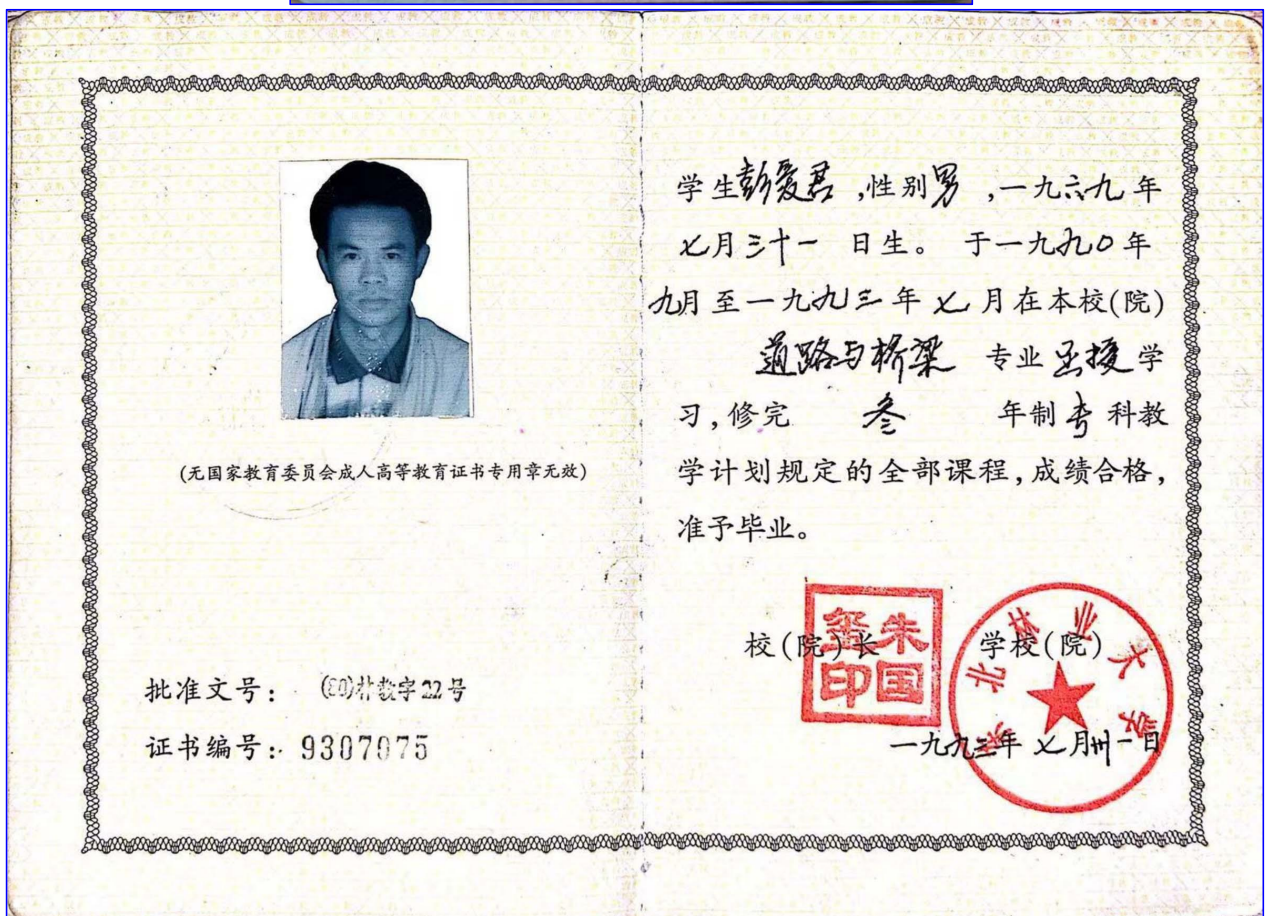 (无国家教育委员会成人高等教育证书专用章无效)
批准文号: (80)林教字22号
证书编号: 9307075
学生彭爱君,性别男,一九六九年
七月三十一日生。于一九九〇年
九月至一九九三年七月在本校(院)
道路与桥梁 专业函授学
习,修完 叁 年制专科教
学计划规定的全部课程,成绩合格,
准予毕业。
校(院)长 学校(院)
朱国玺印
东北林业大学
一九九三年七月卅一日